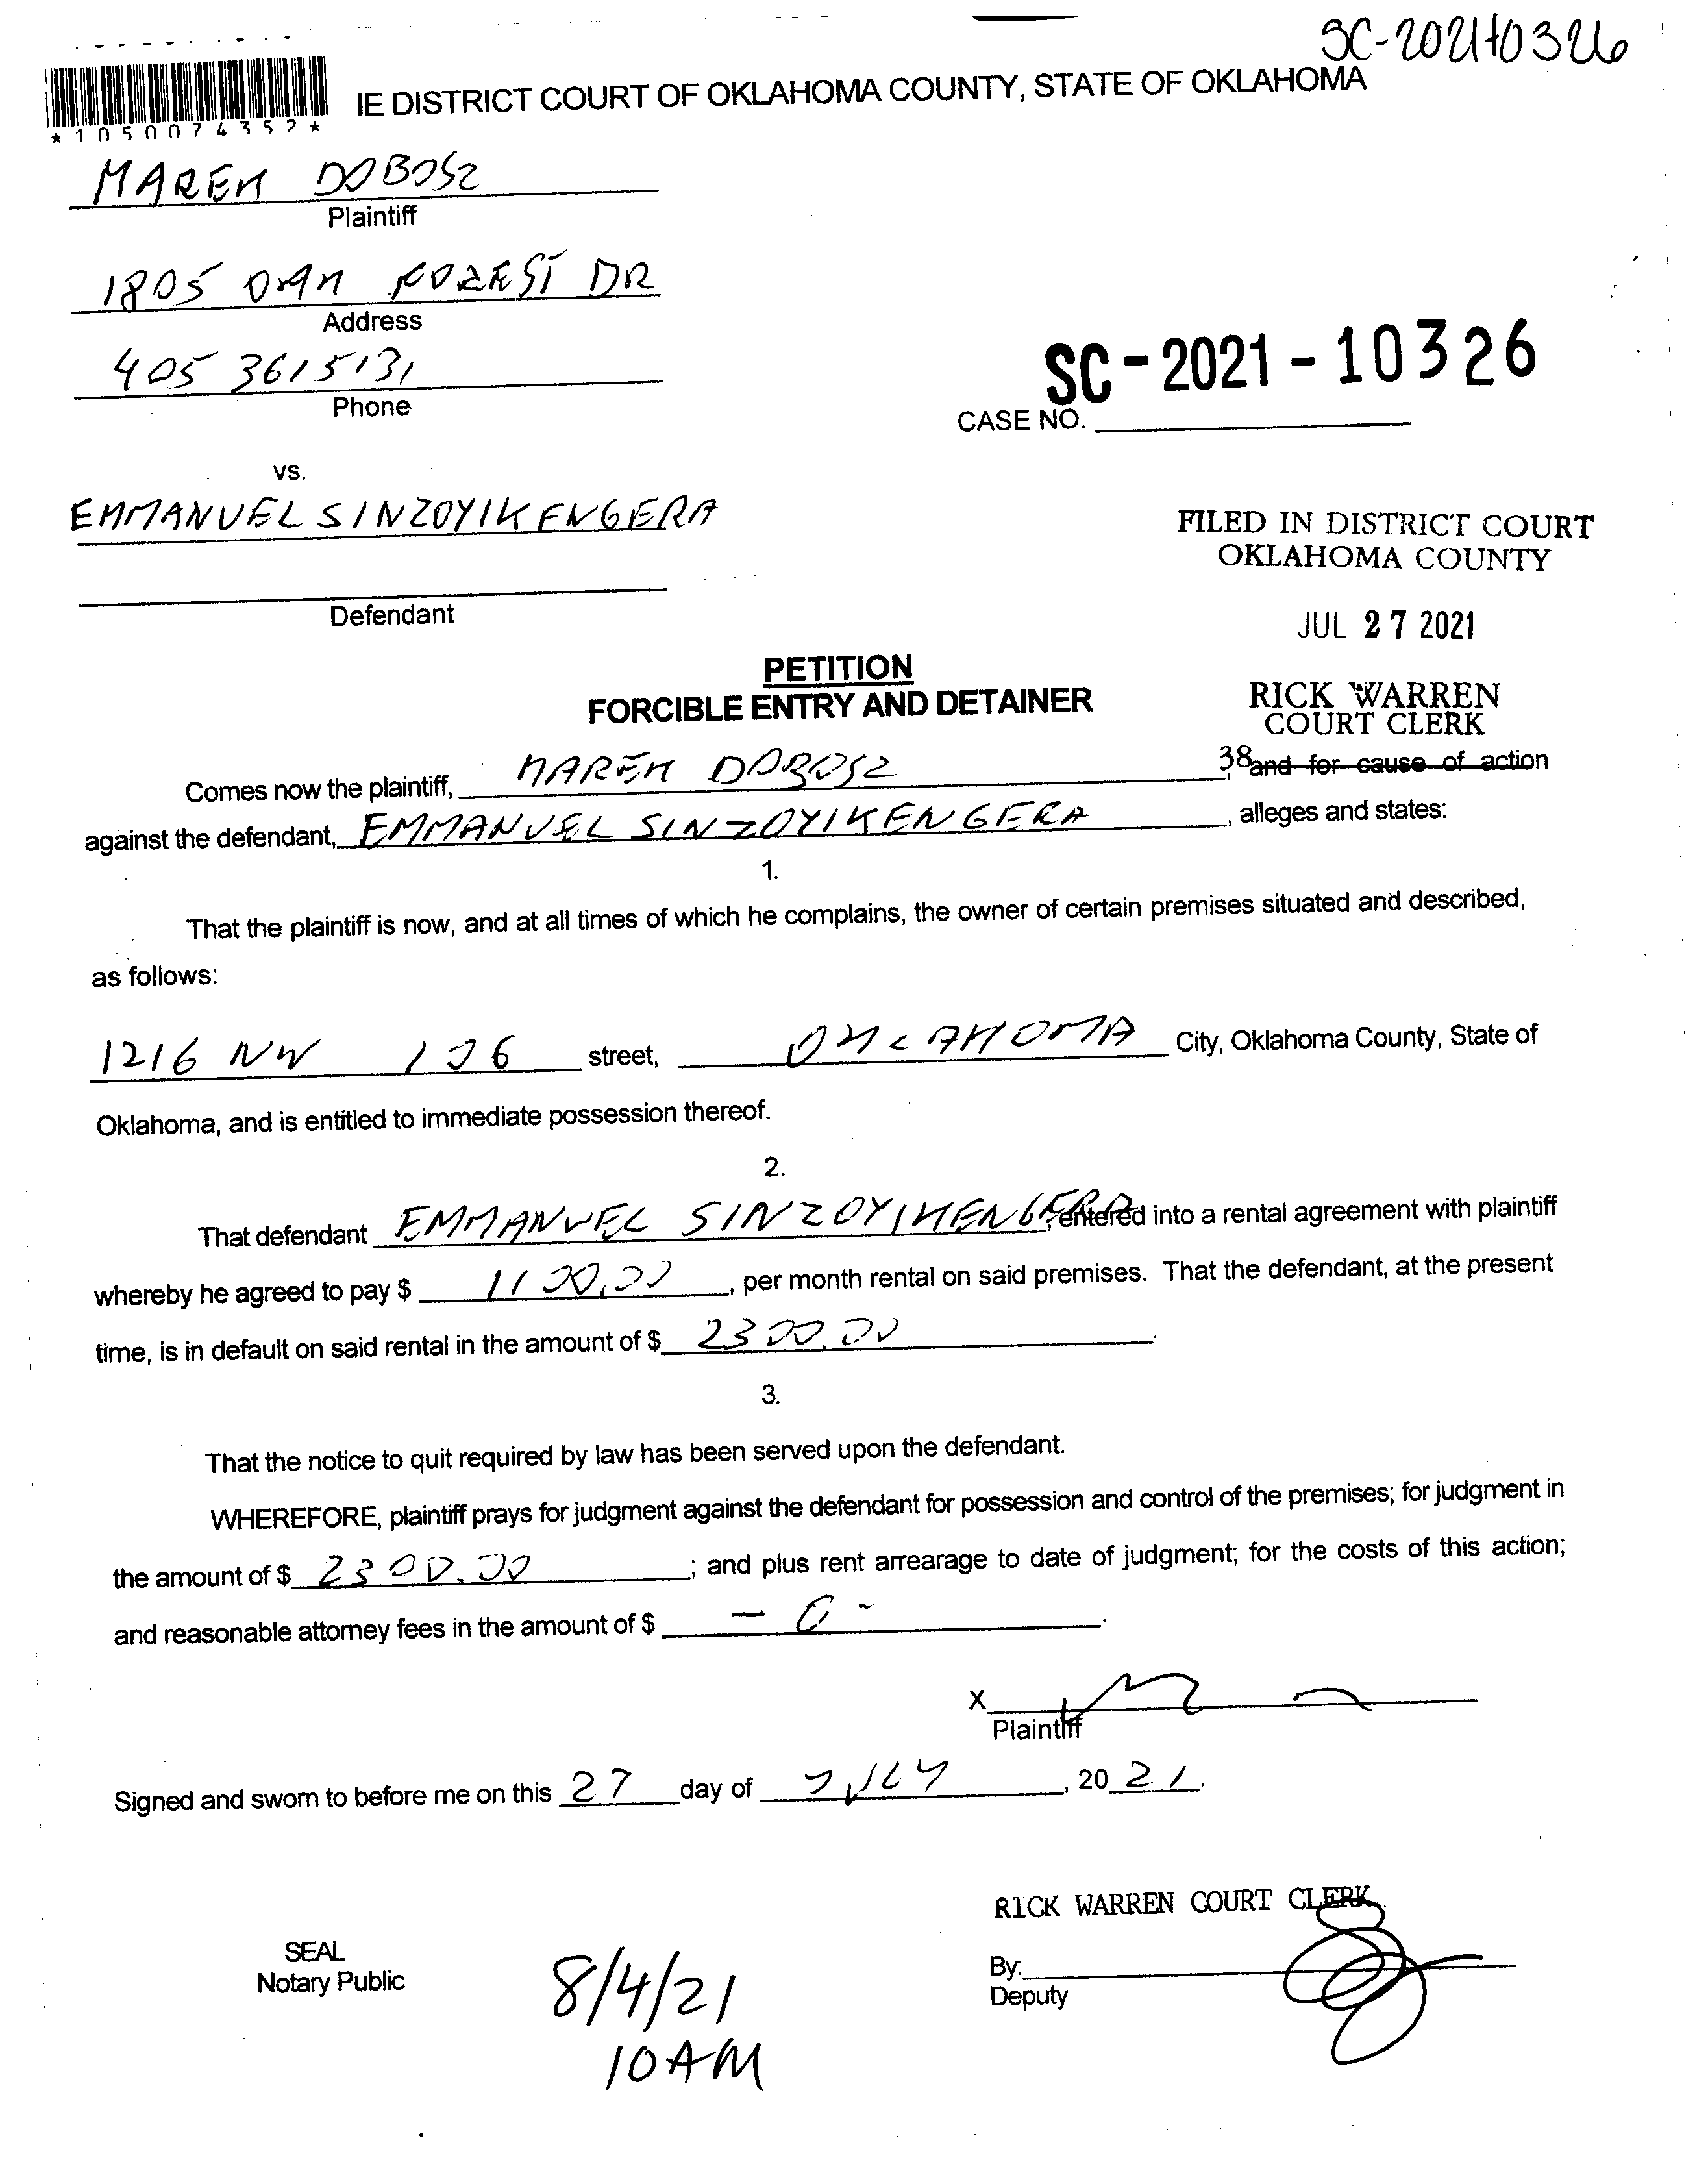 SC-2021-10326
IE DISTRICT COURT OF OKLAHOMA COUNTY, STATE OF OKLAHOMA
*1050074352*
MAREK DOBOSZ
Plaintiff
1805 OAK FOREST DR
Address
405 3615131
Phone
SC-2021-10326
CASE NO.
vs.
EMMANUEL SINZOYIKENGERA
Defendant
FILED IN DISTRICT COURT
OKLAHOMA COUNTY
JUL 27 2021
RICK WARREN
COURT CLERK
PETITION
FORCIBLE ENTRY AND DETAINER
38
Comes now the plaintiff, MAREK DOBOSZ, and for cause of action
against the defendant, EMMANUEL SINZOYIKENGERA, alleges and states:
1.
That the plaintiff is now, and at all times of which he complains, the owner of certain premises situated and described,
as follows:
1216 NW 106 street, OKLAHOMA City, Oklahoma County, State of
Oklahoma, and is entitled to immediate possession thereof.
2.
That defendant EMMANUEL SINZOYIKENGERA, entered into a rental agreement with plaintiff
whereby he agreed to pay $ 1100.00, per month rental on said premises. That the defendant, at the present
time, is in default on said rental in the amount of $ 2300.00.
3.
That the notice to quit required by law has been served upon the defendant.
WHEREFORE, plaintiff prays for judgment against the defendant for possession and control of the premises; for judgment in
the amount of $ 2300.00; and plus rent arrearage to date of judgment; for the costs of this action;
and reasonable attorney fees in the amount of $ - 0 -.
X
Plaintiff
Signed and sworn to before me on this 27 day of JULY, 2021.
RICK WARREN COURT CLERK
SEAL
Notary Public
By:
Deputy
8/4/21
10AM